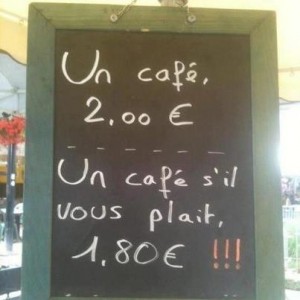 Un café,
2,00 €
Un café s'il
vous plait,
1,80€ !!!